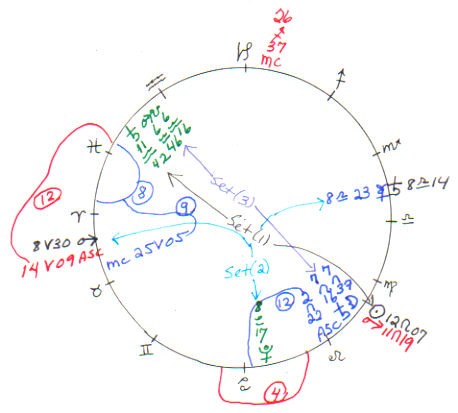 26
♐
37
mc
♑
♐
♒
♏
♓
11 6 6
♒ ♒ ♒
42 46 16
12
8
9
Set(3)
Set(1)
Set(2)
8 ♎ 23
♄ 8 ♎ 14
♎
♈
8 ♈ 30
14 ♈ 09 ASC
mc 25 ♈ 05
♉
♊
♋
♌
♍
8
♋
17
♀
12
7 7
♌ ♌
16 39
♄ ☽
2
♌
22
ASC
☉ 12 ♌ 07
♂ 11 ♌ 19
4